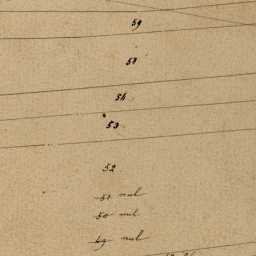 59
58
54
53
52
51 nul
50 nul
49 nul